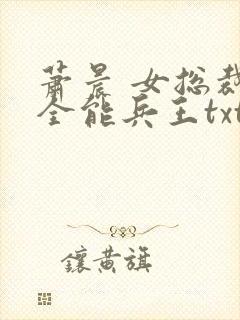 萧晨 女总裁
全能兵王txt
鑲黄旗